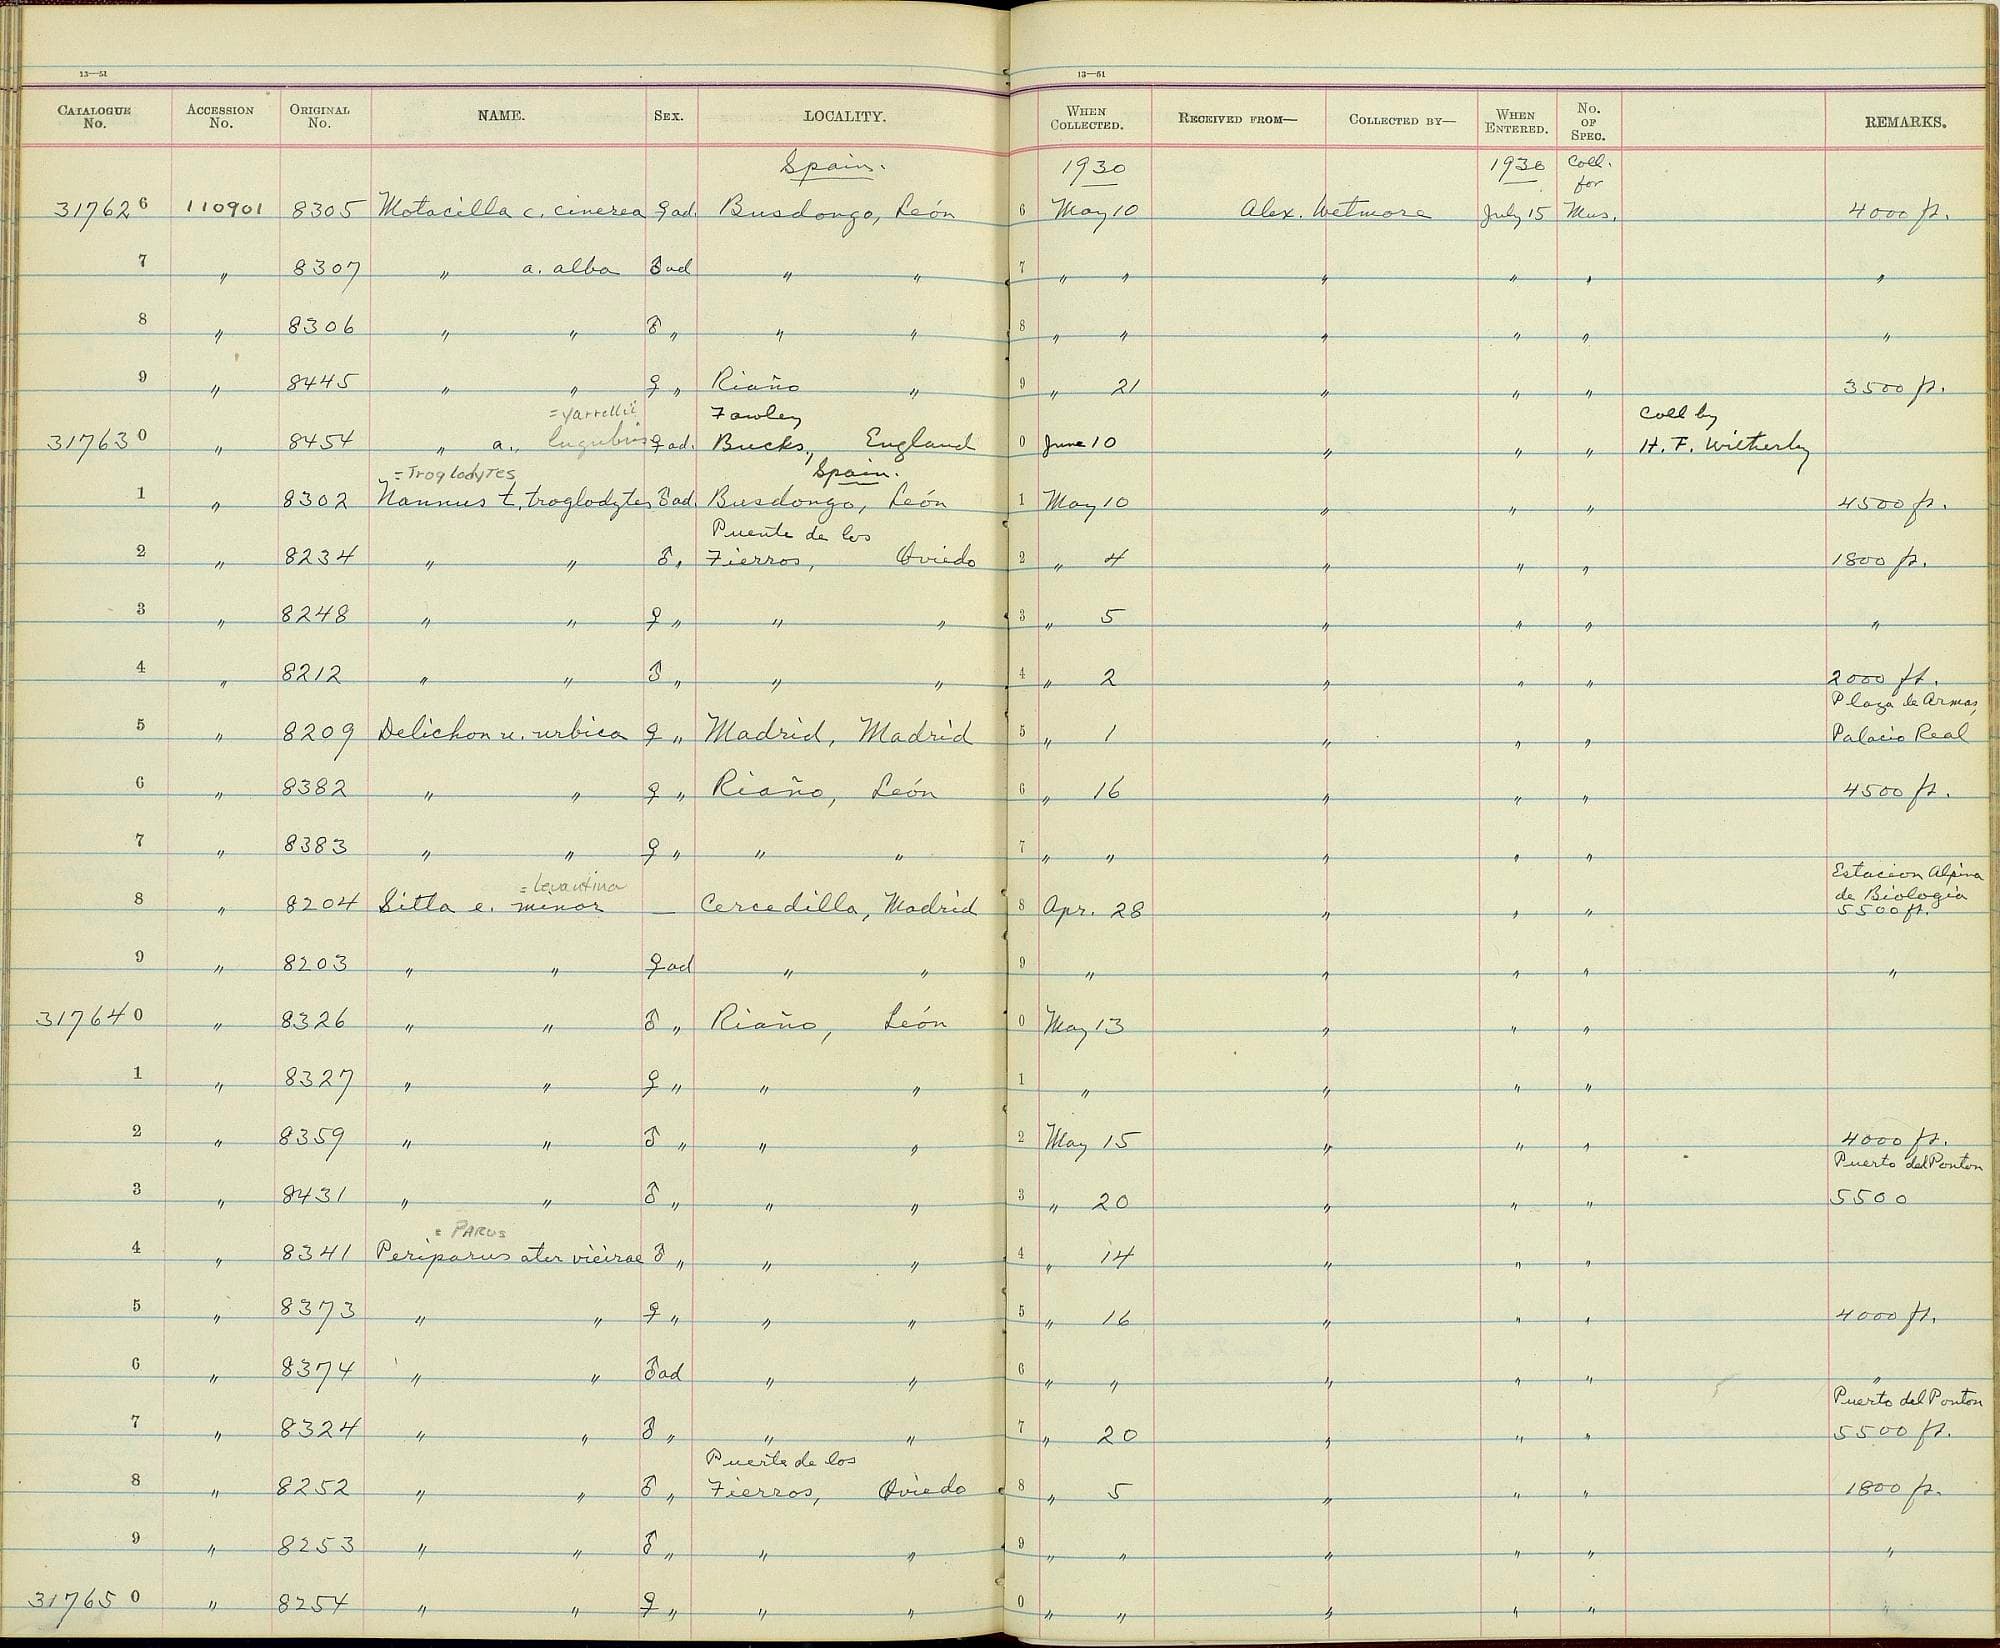 13—51 13—51
CATALOGUE No. ACCESSION No. ORIGINAL No. NAME. SEX. LOCALITY. WHEN COLLECTED. RECEIVED FROM— COLLECTED BY— WHEN ENTERED. No. OF SPEC. REMARKS.
Spain. 1930 1930 Coll. for
317626 110901 8305 Motacilla c. cinerea ♀ ad. Busdongo, León 6 May 10 Alex. Wetmore July 15 Mus. 4000 ft.
7 " 8307 " a. alba ♂ ad " " 7 " " " " " "
8 " 8306 " " ♂ " " " 8 " " " " " "
9 " 8445 " " ♀ " Riaño " 9 " 21 " " " 3500 ft.
= yarrellii Fawley Coll by
317630 " 8454 " a. lugubris ♀ ad. Bucks, England 0 June 10 " " " H. F. Witherby
= Troglodytes Spain.
1 " 8302 Nannus t. troglodytes ♂ ad. Busdongo, León 1 May 10 " " " 4500 ft.
Puente de los
2 " 8234 " " ♂ " Fierros, Oviedo 2 " 4 " " " 1800 ft.
3 " 8248 " " ♀ " " " 3 " 5 " " " "
4 " 8212 " " ♂ " " " 4 " 2 " " " 2000 ft.
Plaza de Armas,
5 " 8209 Delichon u. urbica ♀ " Madrid, Madrid 5 " 1 " " " Palacio Real
6 " 8382 " " ♀ " Riaño, León 6 " 16 " " " 4500 ft.
7 " 8383 " " ♀ " " " 7 " " " " "
= levantina Estacion Alpina de Biologia
8 " 8204 Sitta e. minor — Cercedilla, Madrid 8 Apr. 28 " " " 5500 ft.
9 " 8203 " " ♀ ad " " 9 " " " " "
317640 " 8326 " " ♂ " Riaño, León 0 May 13 " " "
1 " 8327 " " ♀ " " " 1 " " " "
2 " 8359 " " ♂ " " " 2 May 15 " " " 4000 ft.
Puerto del Ponton
3 " 8431 " " ♂ " " " 3 " 20 " " " 5500
= PARUS
4 " 8341 Periparus ater vieirae ♂ " " " 4 " 14 " " "
5 " 8373 " " ♀ " " " 5 " 16 " " " 4000 ft.
6 " 8374 " " ♂ ad " " 6 " " " " " "
Puerto del Ponton
7 " 8324 " " ♂ " " " 7 " 20 " " " 5500 ft.
Puente de los
8 " 8252 " " ♂ " Fierros, Oviedo 8 " 5 " " " 1800 ft.
9 " 8253 " " ♂ " " " 9 " " " " " "
317650 " 8254 " " ♀ " " " 0 " " " " " "